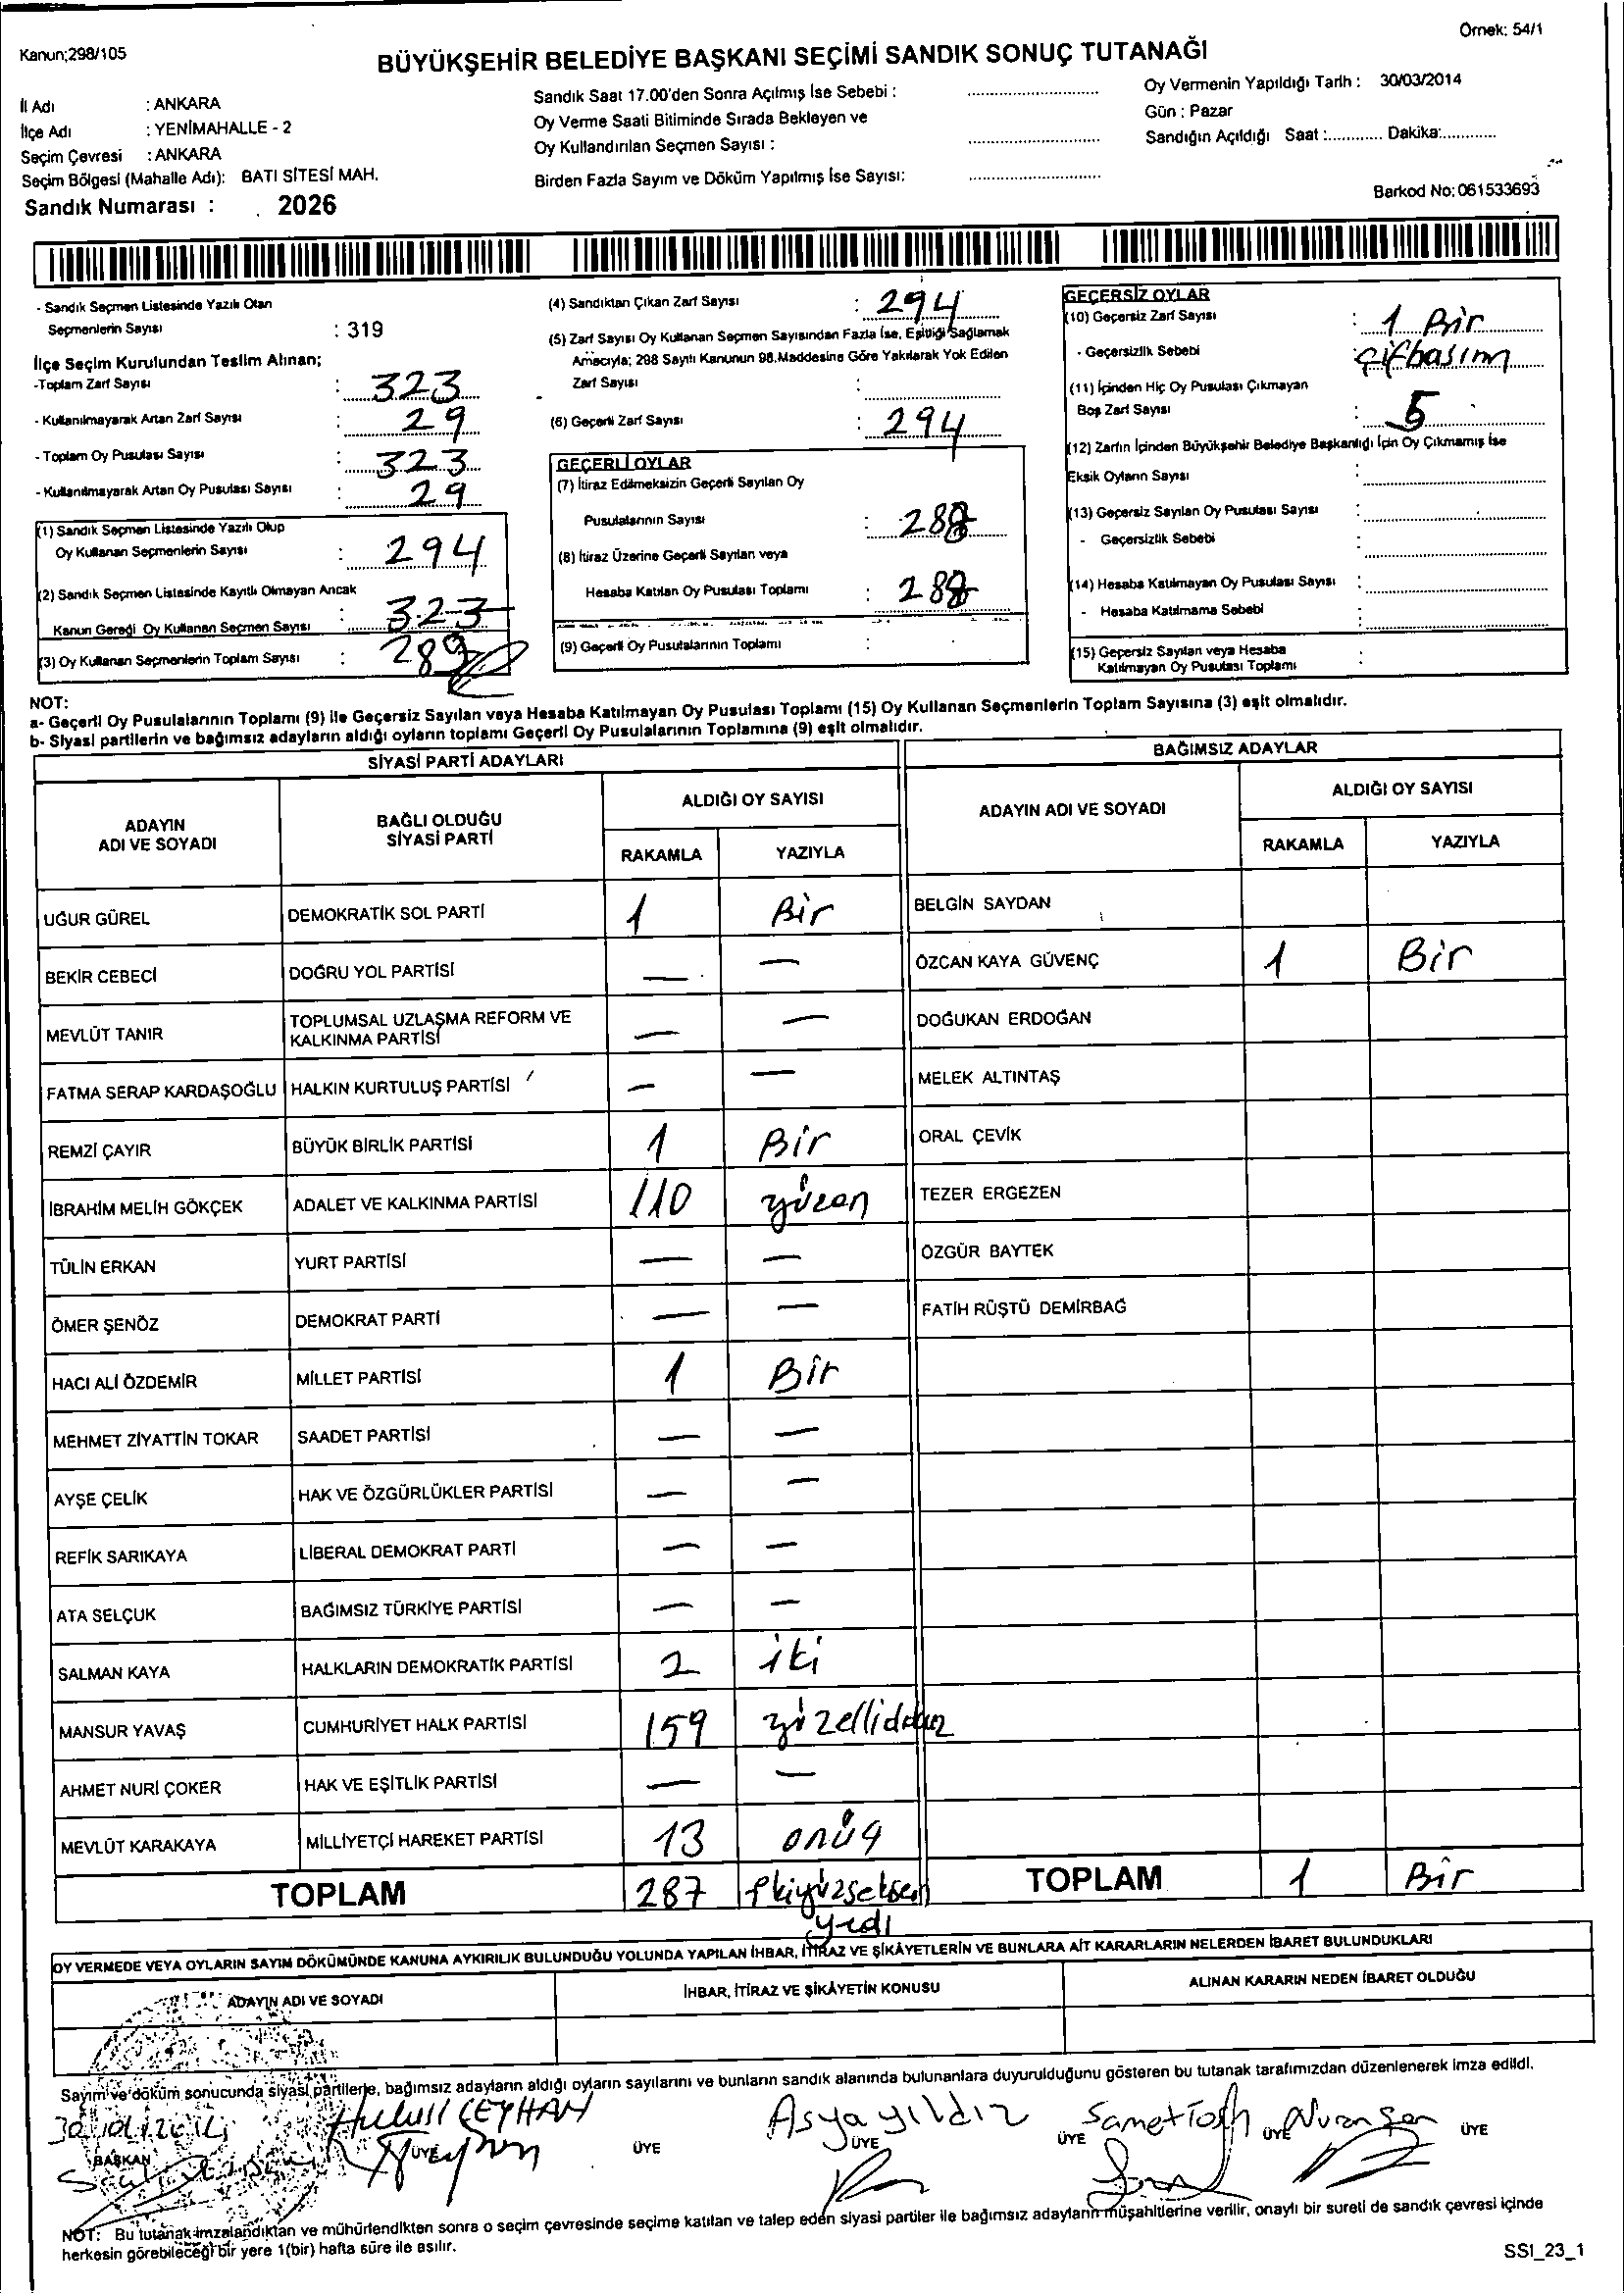 Kanun;298/105
Örnek: 54/1
BÜYÜKŞEHİR BELEDİYE BAŞKANI SEÇİMİ SANDIK SONUÇ TUTANAĞI
İl Adı : ANKARA
İlçe Adı : YENİMAHALLE - 2
Seçim Çevresi : ANKARA
Seçim Bölgesi (Mahalle Adı): BATI SİTESİ MAH.
Sandık Numarası : 2026
Sandık Saat 17.00'den Sonra Açılmış İse Sebebi :
Oy Verme Saati Bitiminde Sırada Bekleyen ve
Oy Kullandırılan Seçmen Sayısı :
Birden Fazla Sayım ve Döküm Yapılmış İse Sayısı:
Oy Vermenin Yapıldığı Tarih : 30/03/2014
Gün : Pazar
Sandığın Açıldığı Saat :............ Dakika:............
Barkod No: 061533693
- Sandık Seçmen Listesinde Yazılı Olan
Seçmenlerin Sayısı : 319
İlçe Seçim Kurulundan Teslim Alınan;
-Toplam Zarf Sayısı : 323
- Kullanılmayarak Artan Zarf Sayısı : 29
- Toplam Oy Pusulası Sayısı : 323
- Kullanılmayarak Artan Oy Pusulası Sayısı : 29
(1) Sandık Seçmen Listesinde Yazılı Olup
Oy Kullanan Seçmenlerin Sayısı : 294
(2) Sandık Seçmen Listesinde Kayıtlı Olmayan Ancak
Kanun Gereği Oy Kullanan Seçmen Sayısı : 323
(3) Oy Kullanan Seçmenlerin Toplam Sayısı : 289
(4) Sandıktan Çıkan Zarf Sayısı : 294
(5) Zarf Sayısı Oy Kullanan Seçmen Sayısından Fazla İse, Eşitliği Sağlamak
Amacıyla; 298 Sayılı Kanunun 98.Maddesine Göre Yakılarak Yok Edilen
Zarf Sayısı :
(6) Geçerli Zarf Sayısı : 294
GEÇERLİ OYLAR
(7) İtiraz Edilmeksizin Geçerli Sayılan Oy
Pusulalarının Sayısı : 288
(8) İtiraz Üzerine Geçerli Sayılan veya
Hesaba Katılan Oy Pusulası Toplamı : 288
(9) Geçerli Oy Pusulalarının Toplamı :
GEÇERSİZ OYLAR
(10) Geçersiz Zarf Sayısı : 1 Bir
- Geçersizlik Sebebi : çifbasım
(11) İçinden Hiç Oy Pusulası Çıkmayan
Boş Zarf Sayısı : 5
(12) Zarfın İçinden Büyükşehir Belediye Başkanlığı İçin Oy Çıkmamış İse
Eksik Oyların Sayısı :
(13) Geçersiz Sayılan Oy Pusulası Sayısı :
- Geçersizlik Sebebi :
(14) Hesaba Katılmayan Oy Pusulası Sayısı :
- Hesaba Katılmama Sebebi :
(15) Geçersiz Sayılan veya Hesaba
Katılmayan Oy Pusulası Toplamı :
NOT:
a- Geçerli Oy Pusulalarının Toplamı (9) ile Geçersiz Sayılan veya Hesaba Katılmayan Oy Pusulası Toplamı (15) Oy Kullanan Seçmenlerin Toplam Sayısına (3) eşit olmalıdır.
b- Siyasi partilerin ve bağımsız adayların aldığı oyların toplamı Geçerli Oy Pusulalarının Toplamına (9) eşit olmalıdır.
SİYASİ PARTİ ADAYLARI
BAĞIMSIZ ADAYLAR
ADAYIN
ADI VE SOYADI
BAĞLI OLDUĞU
SİYASİ PARTİ
ALDIĞI OY SAYISI
RAKAMLA YAZIYLA
ADAYIN ADI VE SOYADI
ALDIĞI OY SAYISI
RAKAMLA YAZIYLA
UĞUR GÜREL DEMOKRATİK SOL PARTİ 1 Bir BELGİN SAYDAN
BEKİR CEBECİ DOĞRU YOL PARTİSİ — — ÖZCAN KAYA GÜVENÇ 1 Bir
MEVLÜT TANIR TOPLUMSAL UZLAŞMA REFORM VE KALKINMA PARTİSİ — — DOĞUKAN ERDOĞAN
FATMA SERAP KARDAŞOĞLU HALKIN KURTULUŞ PARTİSİ — — MELEK ALTINTAŞ
REMZİ ÇAYIR BÜYÜK BİRLİK PARTİSİ 1 Bir ORAL ÇEVİK
İBRAHİM MELİH GÖKÇEK ADALET VE KALKINMA PARTİSİ 110 yüzon TEZER ERGEZEN
TÜLİN ERKAN YURT PARTİSİ — — ÖZGÜR BAYTEK
ÖMER ŞENÖZ DEMOKRAT PARTİ — — FATİH RÜŞTÜ DEMİRBAĞ
HACI ALİ ÖZDEMİR MİLLET PARTİSİ 1 Bir
MEHMET ZİYATTİN TOKAR SAADET PARTİSİ — —
AYŞE ÇELİK HAK VE ÖZGÜRLÜKLER PARTİSİ — —
REFİK SARIKAYA LİBERAL DEMOKRAT PARTİ — —
ATA SELÇUK BAĞIMSIZ TÜRKİYE PARTİSİ — —
SALMAN KAYA HALKLARIN DEMOKRATİK PARTİSİ 2 iki
MANSUR YAVAŞ CUMHURİYET HALK PARTİSİ 159 yüzellidokuz
AHMET NURİ ÇOKER HAK VE EŞİTLİK PARTİSİ — —
MEVLÜT KARAKAYA MİLLİYETÇİ HAREKET PARTİSİ 13 onüç
TOPLAM 287 ikiyüzseksen TOPLAM 1 Bir
yedi
OY VERMEDE VEYA OYLARIN SAYIM DÖKÜMÜNDE KANUNA AYKIRILIK BULUNDUĞU YOLUNDA YAPILAN İHBAR, İTİRAZ VE ŞİKÂYETLERİN VE BUNLARA AİT KARARLARIN NELERDEN İBARET BULUNDUKLARI
ADAYIN ADI VE SOYADI İHBAR, İTİRAZ VE ŞİKÂYETİN KONUSU ALINAN KARARIN NEDEN İBARET OLDUĞU
Sayım ve döküm sonucunda siyasi partilerle, bağımsız adayların aldığı oyların sayılarını ve bunların sandık alanında bulunanlara duyurulduğunu gösteren bu tutanak tarafımızdan düzenlenerek imza edildi.
Hulusi CEYHAN Asya yıldız Samet Nuran Şen
BAŞKAN ÜYE ÜYE ÜYE ÜYE ÜYE ÜYE
NOT: Bu tutanak imzalandıktan ve mühürlendikten sonra o seçim çevresinde seçime katılan ve talep eden siyasi partiler ile bağımsız adayların müşahitlerine verilir, onaylı bir sureti de sandık çevresi içinde
herkesin görebileceği bir yere 1(bir) hafta süre ile asılır.
SSI_23_1